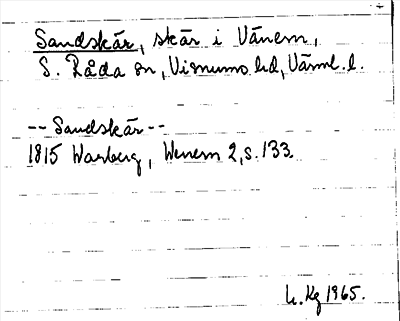 Sandskär, skär i Vänern,
S. Råda sn, Visnums hd, Värml. l.
-- Sandskär --
1815 Warberg, Wenern 2, s. 133.
L. Kg 1965.